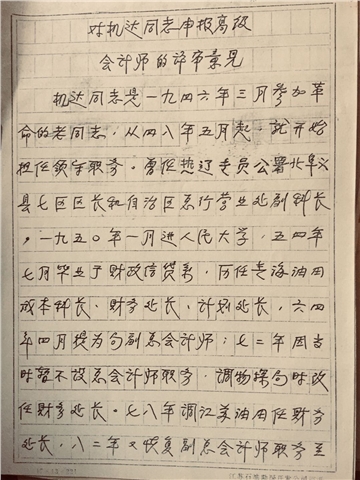 对机达同志申报高级
会计师的评审意见
机达同志是一九四六年三月参加革
命的老同志，从四八年五月起，就开始
担任领导职务，曾任热辽专员公署北阜义
县七区区长和自治区总行营业处副科长
，一九五〇年一月进人民大学，五四年
七月毕业于财政信贷系，历任青海油田
成本科长、财务处长、计划处长，六四
年四月提为局副总会计师；七二年因当
时暂不设总会计师职务，调物探局时改
任财务处长。七八年调江苏油田任财务
处长，八二年又恢复副总会计师职务至